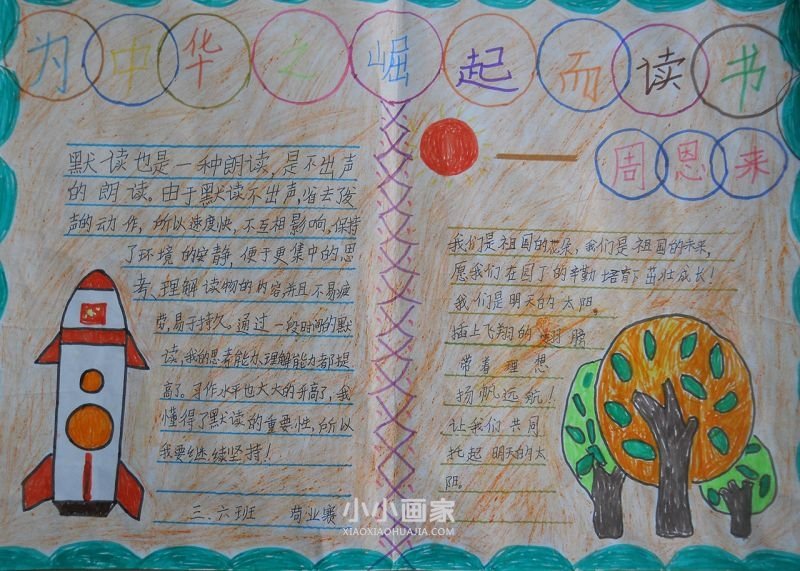 为中华之崛起而读书
周恩来
默读也是一种朗读,是不出声
的朗读。由于默读不出声,省去发
声的动作,所以速度快,不互相影响,保持
了环境的安静,便于更集中的思
考、理解读物的内容,并且不易疲
劳,易于持久。通过一段时间的默
读,我的思考能力、理解能力都提
高了。习作水平也大大的升高了,我
懂得了默读的重要性,所以
我要继续坚持!
三、六班 苟业赛
我们是祖国的花朵,我们是祖国的未来,
愿我们在园丁的辛勤培育下茁壮成长!
我们是明天的太阳。
插上飞翔的翅膀
带着理想
扬帆远航!
让我们共同
托起明天的太
阳。
小小画家
XIAOXIAOHUAJIA.COM